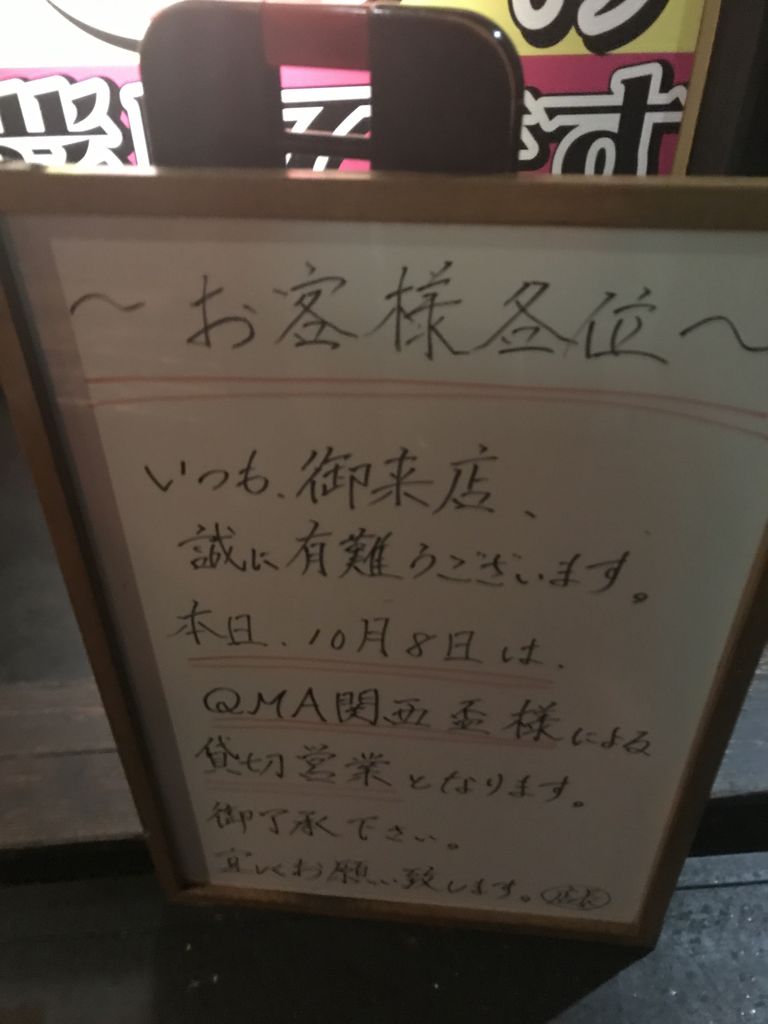 です
～お客様各位～
いつも、御来店、
誠に有難うございます。
本日、10月8日は、
QMA関西盃様による
貸切営業となります。
御了承下さい。
宜しくお願い致します。店長